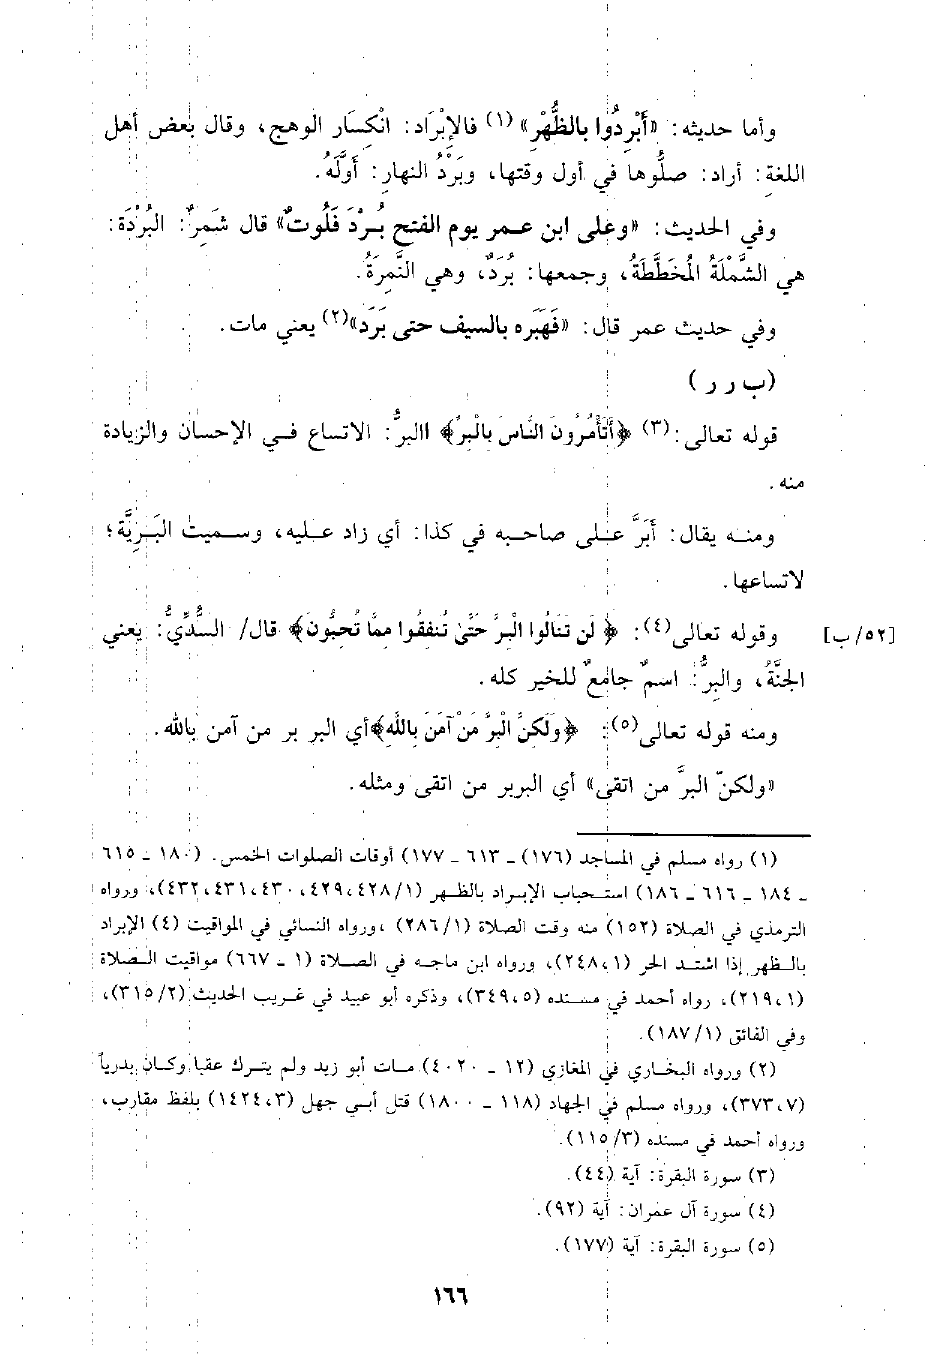 وأما حديثه: «أَبْرِدُوا بالظُّهْرِ»(١) فالإبْرَاد: انْكِسَار الوهج، وقال بعض أهل
اللغة: أراد: صلُّوها في أول وقتها، وبَرْدُ النهارِ: أَوَّلُه.
وفي الحديث: «وعلى ابن عمر يوم الفتح بُرْدَ فَلُوتٌ» قال شَمِرٌ: البُرْدَة:
هي الشَّمْلَةُ المُخَطَّطَةُ، وجمعها: بُرَدٌ، وهي النَّمِرَةُ.
وفي حديث عمر قال: «فَهَبَره بالسيف حتى بَرَد»(٢) يعني مات.
(ب ر ر )
قوله تعالى:(٣) ﴿أَتَأْمُرُونَ النَّاسَ بِالْبِرِّ﴾ االبرُّ: الاتساع في الإحسان والزيادة
منه.
ومنه يقال: أَبَرَّ على صاحبه في كذا: أي زاد عليه، وسميت البَرِيَّة؛
لاتساعها.
[٥٢/ب] وقوله تعالى(٤): ﴿ لَن تَنَالُوا الْبِرَّ حَتَّىٰ تُنفِقُوا مِمَّا تُحِبُّونَ﴾ قال/ السُّدِّيُّ: يعني
الجنَّةُ، والبِرُّ: اسمٌ جامعٌ للخير كله.
ومنه قوله تعالى(٥): ﴿وَلَكِنَّ الْبِرَّ مَنْ آمَنَ بِاللَّهِ﴾أي البر بر من آمن بالله.
«ولكنّ البرَّ من اتقى» أي البربر من اتقى ومثله.
(١) رواه مسلم في المساجد (١٧٦) ـ ٦١٣ ـ ١٧٧) أوقات الصلوات الخمس. (١٨٠ ـ ٦١٥
ـ ١٨٤ ـ ٦١٦ ـ ١٨٦) استحباب الإبراد بالظهر (٤٢٨/١، ٤٢٩، ٤٣٠، ٤٣١، ٤٣٢)، ورواه
الترمذي في الصلاة (١٥٢) منه وقت الصلاة (٢٨٦/١) ،ورواه النسائي في المواقيت (٤) الإبراد
بالظهر إذا اشتد الحر (٢٤٨،١)، ورواه ابن ماجه في الصلاة (١ ـ ٦٦٧) مواقيت الصلاة
(٢١٩،١)، رواه أحمد في مسنده (٣٤٩،٥)، وذكره أبو عبيد في غريب الحديث (٣١٥/٢)،
وفي الفائق (١٨٧/١).
(٢) ورواه البخاري في المغازي (١٢ ـ ٤٠٢٠) مات أبو زيد ولم يترك عقبا وكان بدرياً
(٣٧٣،٧)، ورواه مسلم في الجهاد (١١٨ ـ ١٨٠٠) قتل أبي جهل (١٤٢٤،٣) بلفظ مقارب،
ورواه أحمد في مسنده (١١٥/٣).
(٣) سورة البقرة: آية (٤٤).
(٤) سورة آل عمران: آية (٩٢).
(٥) سورة البقرة: آية (١٧٧).
١٦٦